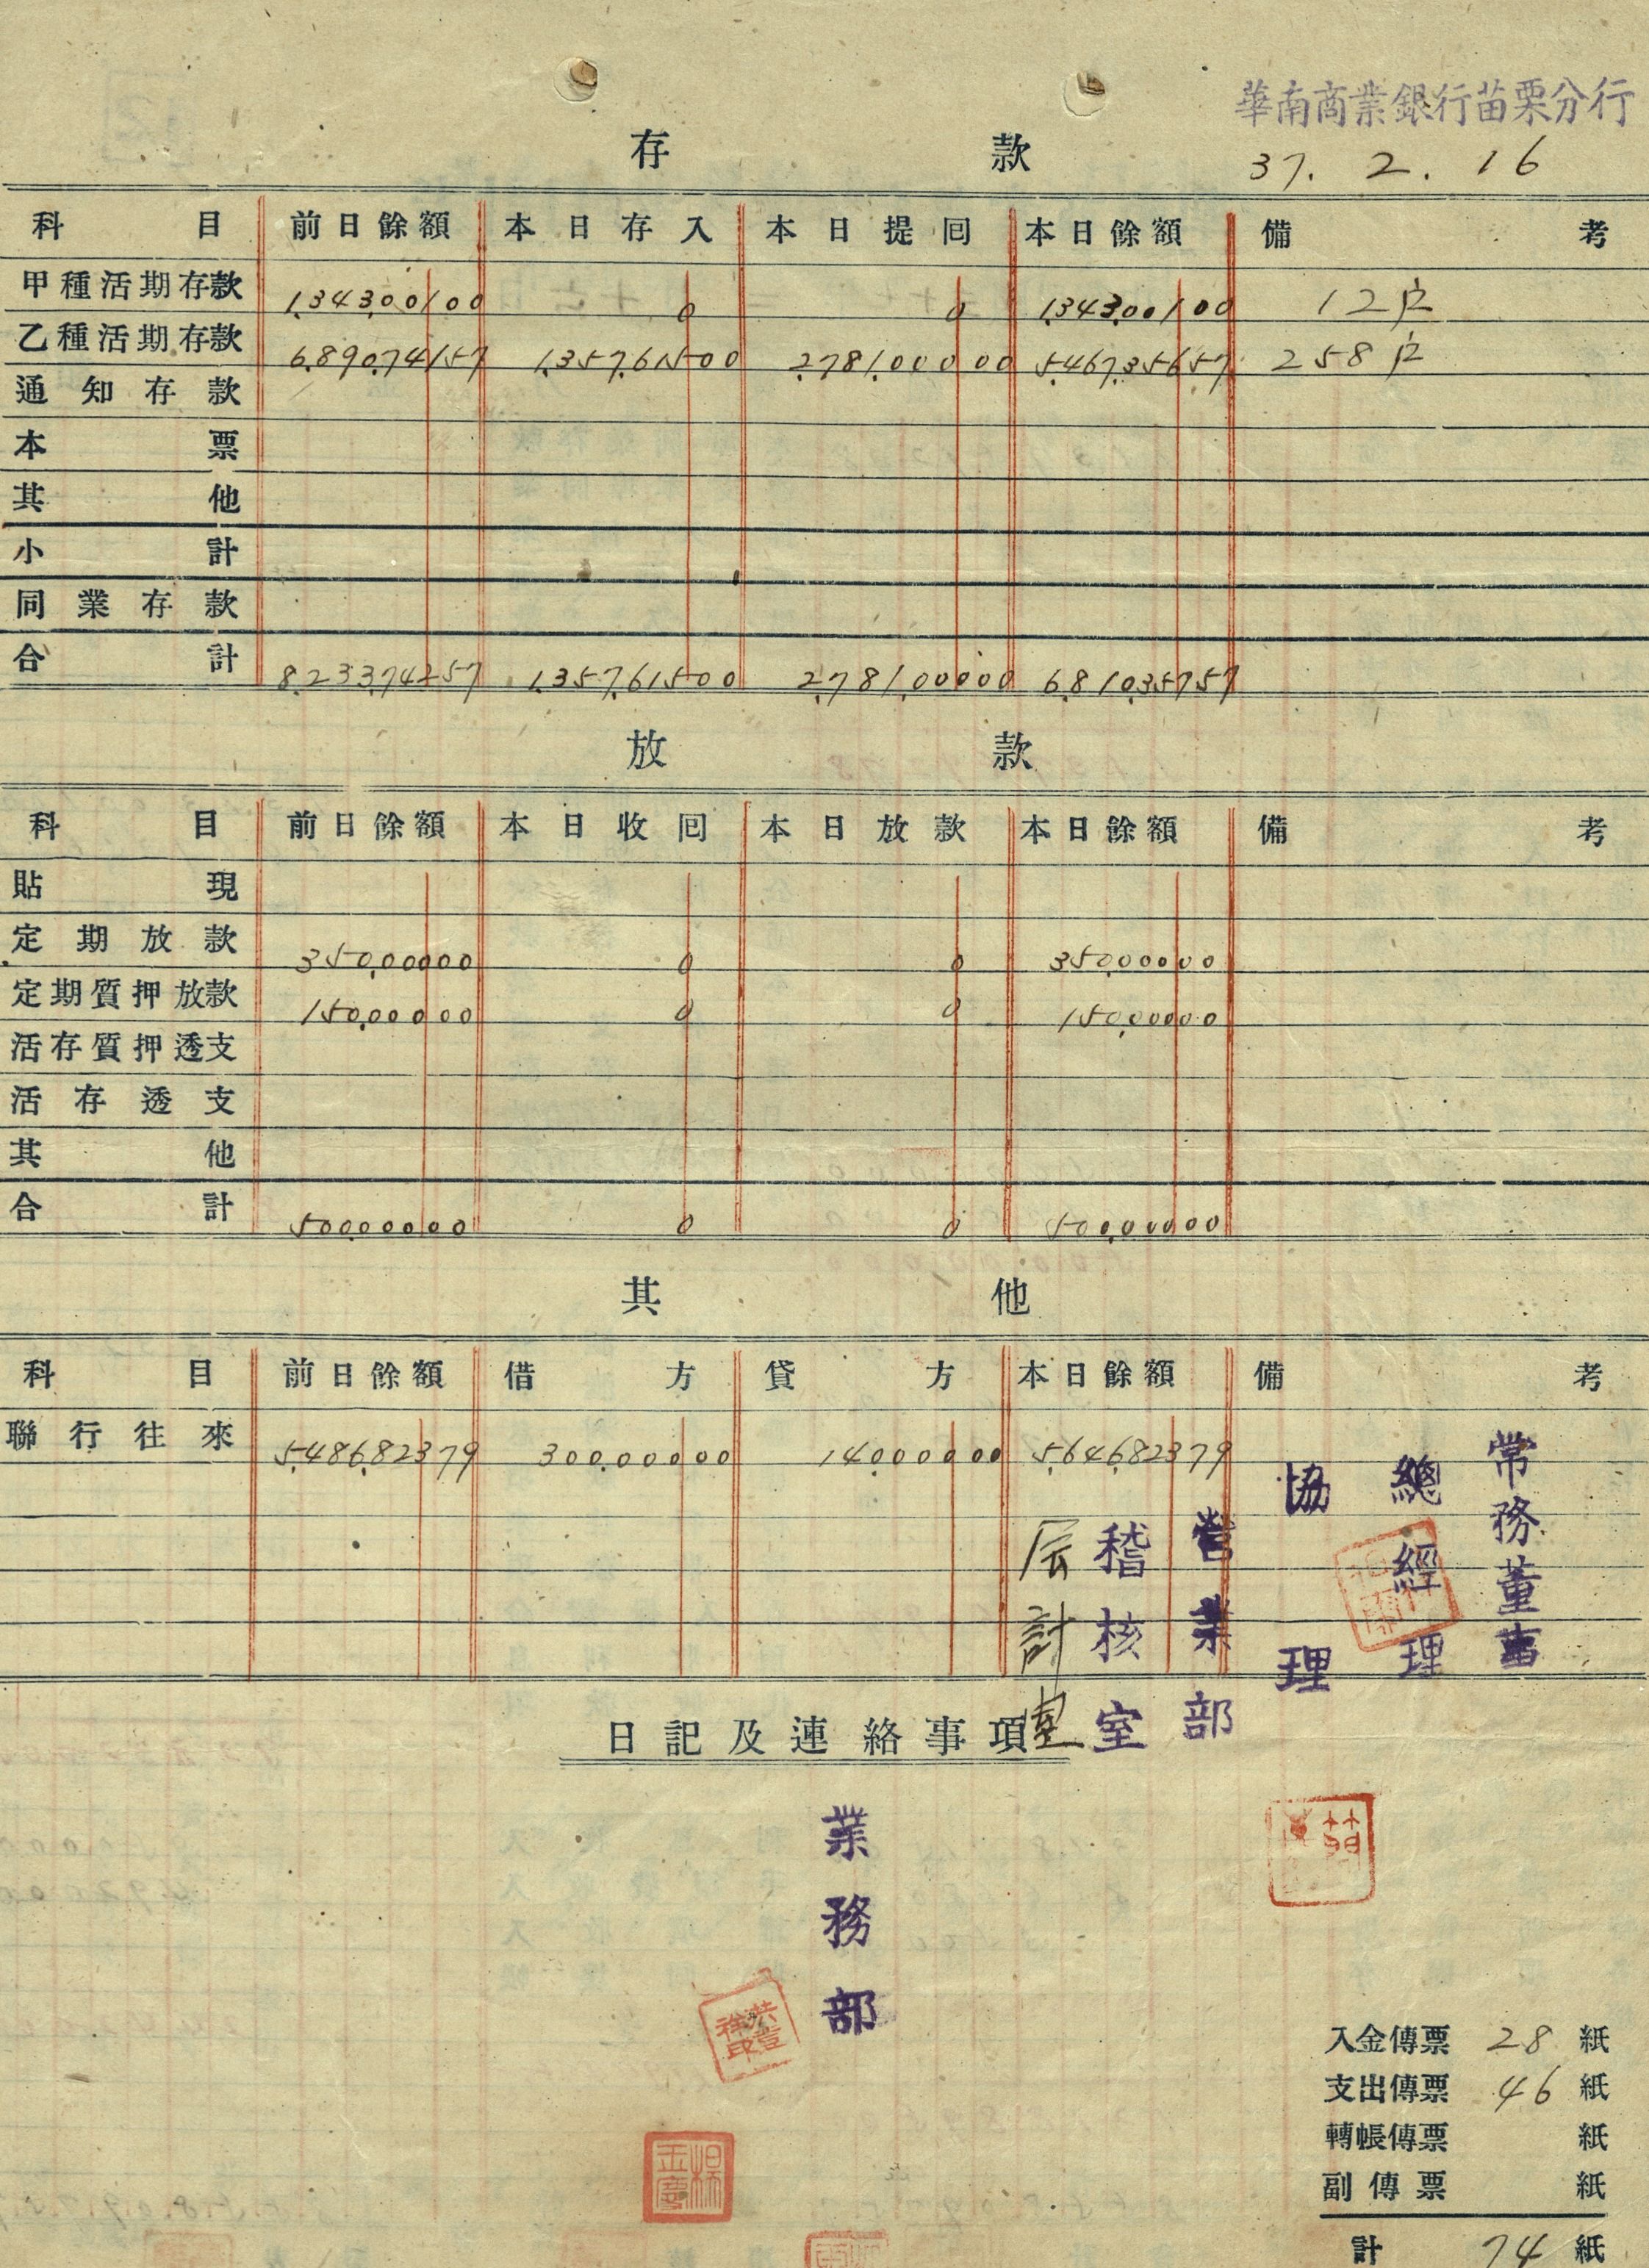 華南商業銀行苗栗分行
37. 2. 16
存款
科目 前日餘額 本日存入 本日提囘 本日餘額 備考
甲種活期存款 1,343,001.00 0 0 1,343,001.00 12戶
乙種活期存款 6,890,741.57 1,357,615.00 2,781,000.00 5,467,356.57 258戶
通知存款
本票
其他
小計
同業存款
合計 8,233,742.57 1,357,615.00 2,781,000.00 6,810,357.57
放款
科目 前日餘額 本日收囘 本日放款 本日餘額 備考
貼現
定期放款 350,000.00 0 0 350,000.00
定期質押放款 150,000.00 0 0 150,000.00
活存質押透支
活存透支
其他
合計 500,000.00 0 0 500,000.00
其他
科目 前日餘額 借方 貸方 本日餘額 備考
聯行往來 5,486,823.79 300,000.00 140,000.00 5,646,823.79
常務董事
總經理
協理
營業部
稽核室
会計室
日記及連絡事項
業務部
入金傳票 28 紙
支出傳票 46 紙
轉帳傳票 紙
副傳票 紙
計 74 紙